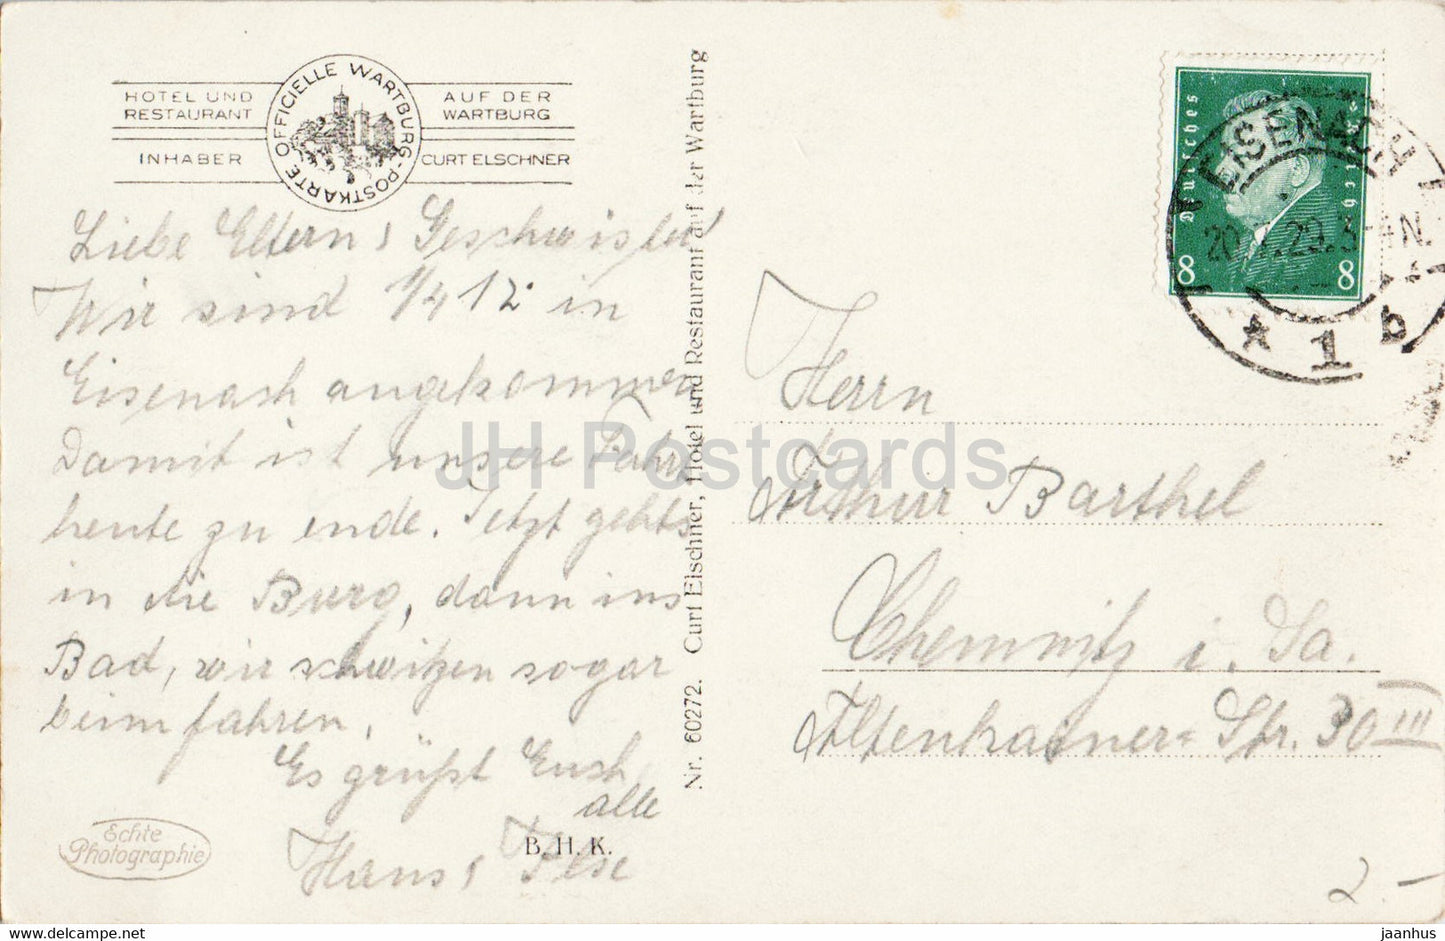 HOTEL UND
RESTAURANT
INHABER
OFFICIELLE WARTBURG-POSTKARTE
AUF DER
WARTBURG
CURT ELSCHNER
Liebe Eltern u Geschwister
Wir sind 1/4 12 in
Eisenach angekommen
Damit ist unsere Fahrt
heute zu ende. Jetzt gehts
in die Burg, dann ins
Bad, wir schwitzen sogar
beim fahren.
Es grüßt Euch
alle
Hans u Ilse
Echte
Photographie
B. H. K.
Nr. 60272. Curt Elschner, Hotel und Restaurant auf der Wartburg
Deutsches Reich
8 8
EISENACH
20. 29. 3-4 N.
* 1 b
Herrn
Arthur Barthel
Chemnitz i. Sa.
Altenhainer-Str. 30 III
2.-
JH Postcards
hippostcard.com/store/jaanhus